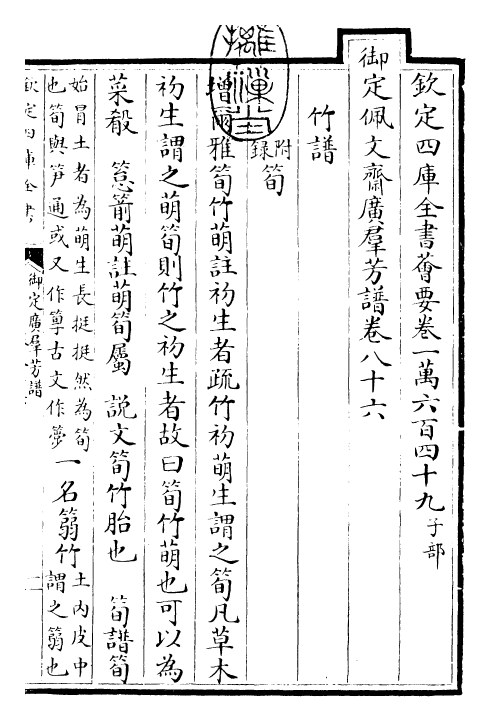 欽定四庫全書薈要卷一萬六百四十九子部
御定佩文齋廣羣芳譜卷八十六
竹譜
附錄筍
增爾雅筍竹萌註初生者疏竹初萌生謂之筍凡草木
初生謂之萌筍則竹之初生者故曰筍竹萌也可以為
菜殽 簜箭萌註萌筍屬 說文筍竹胎也 筍譜筍
始冒土者為萌生長挺挺然為筍
也筍與笋通或又作䇦古文作 一名篛竹土內皮中
謂之篛也
欽定四庫全書
御定廣羣芳譜
一
摛藻堂